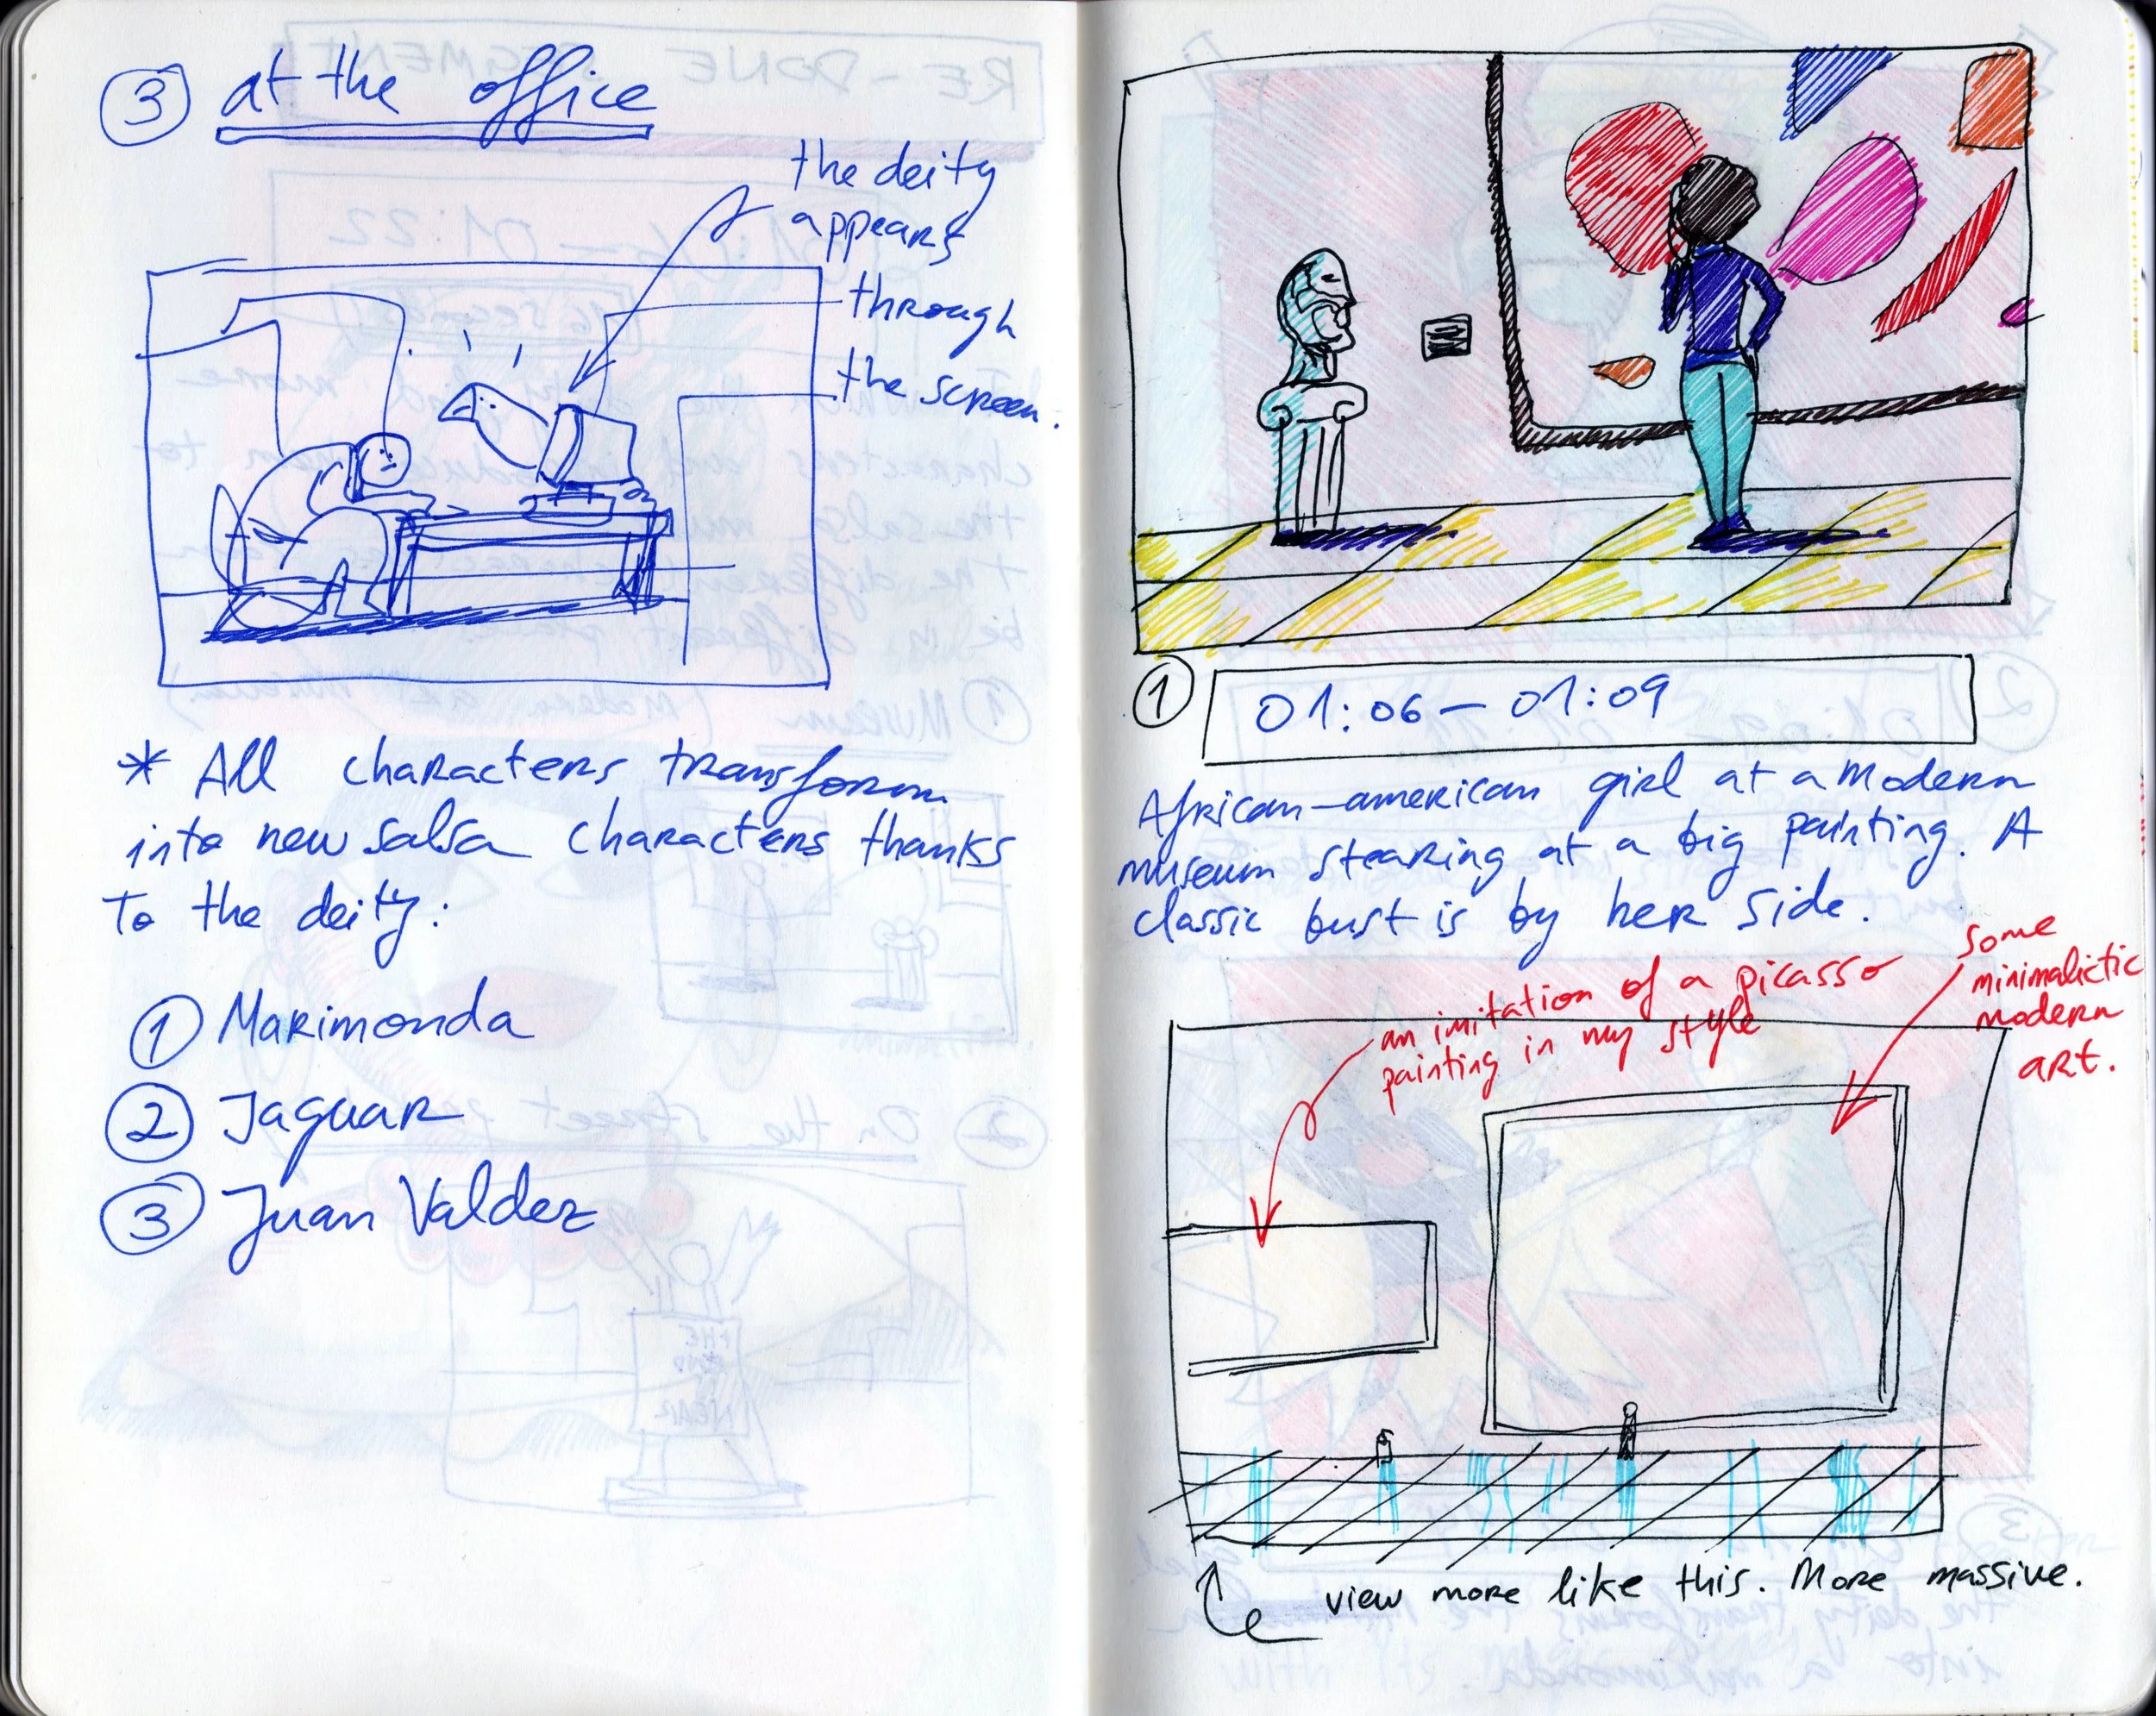 3 at the office
the deity
appears
through
the screen.
* All characters transform
into new salsa characters thanks
to the deity:
1 Marimonda
2 Jaguar
3 Juan Valdez
1 01:06 – 01:09
African-american girl at a modern
museum stearing at a big painting. A
classic bust is by her side.
an imitation of a picasso
painting in my style
some
minimalictic
modern
art.
view more like this. More massive.